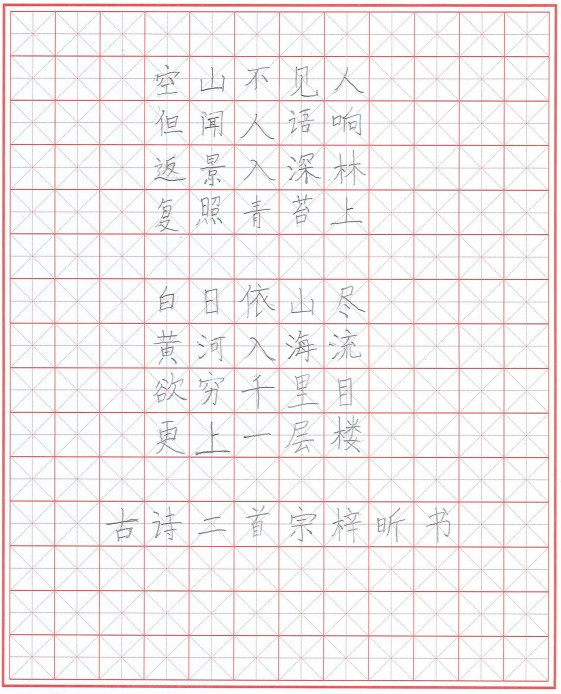 空山不见人
但闻人语响
返景入深林
复照青苔上
白日依山尽
黄河入海流
欲穷千里目
更上一层楼
古诗二首宗梓昕书